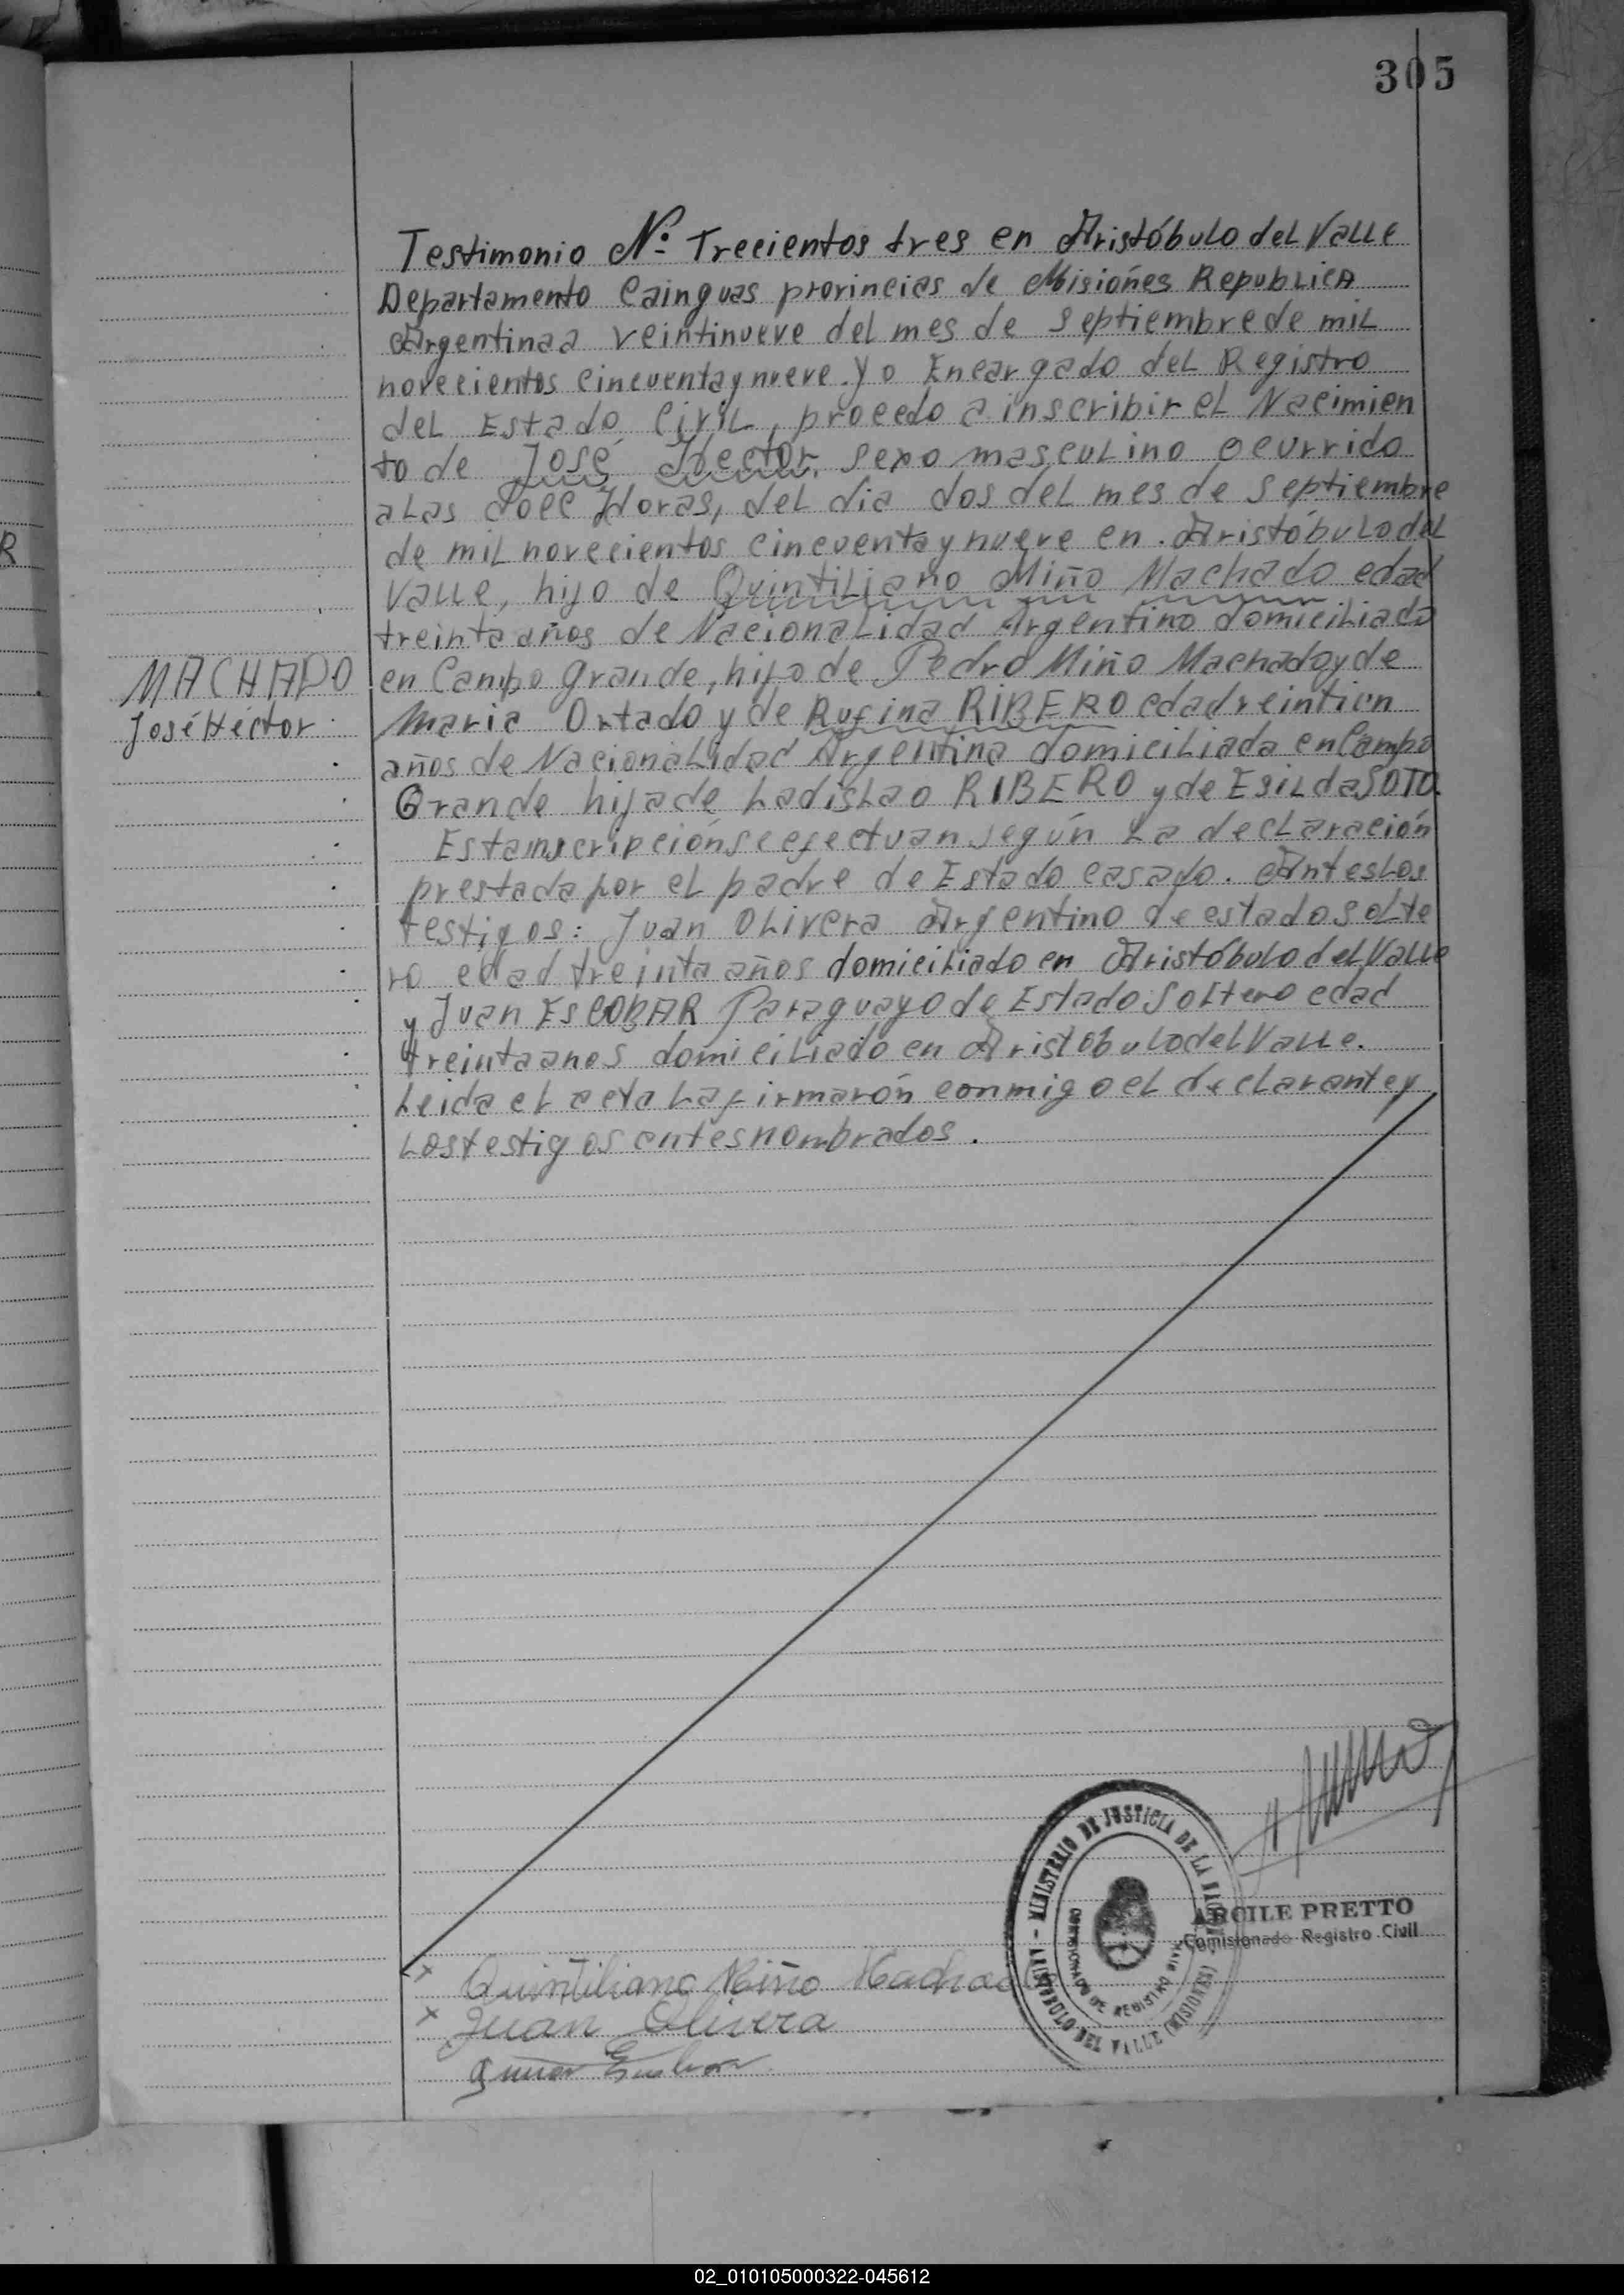 305
Testimonio Nº Trecientos tres en Aristóbulo del Valle
Departamento Cainguas provincias de Misiónes RepublicA
Argentina a veintinueve del mes de septiembre de mil
novecientos cincuenta y nueve. Yo Encargado del Registro
del Estado Civil, procedo a inscribir el Nacimien
to de José Hector, sexo masculino ocurrido
a las doce Horas, del dia dos del mes de septiembre
de mil novecientos cincuenta y nueve en. Aristóbulo del
Valle, hijo de Quintiliano Miño Machado edad
treinta años de Nacionalidad Argentino domiciliado
en Campo grande, hijo de Pedro Miño Machado y de
Maria Ortado y de Rufina RIBERO edad veintiun
años de Nacionalidad Argentina domiciliada en Campo
Grande hija de Ladislao RIBERO y de Esilda SOTO.
Esta inscripción se efectuan según La declaración
prestada por el padre de Estado casado. Antes Los
testigos: Juan Olivera Argentino de estado solte
ro edad treinta años domiciliado en Aristóbulo del Valle
y Juan EscOBAR Paraguayo de Estado Soltero edad
treinta anos domiciliado en Aristobulo del Valle.
Leida el acta La firmarón conmigo el declarante y
Los testigos antes nombrados.
MACHADO
José Héctor
R
MINISTERIO DE JUSTICIA DE LA
ARISTOBULO DEL VALLE (MISIONES)
COMISIONADO DE REGISTRO CIVIL
ARCILE PRETTO
Comisionado Registro Civil
x Quintiliano Miño Machado
x Juan Olivera
02_010105000322-045612